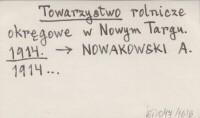 Towarzystwo rolnicze
okręgowe w Nowym Targu.
1914. → NOWAKOWSKI A.
1914...